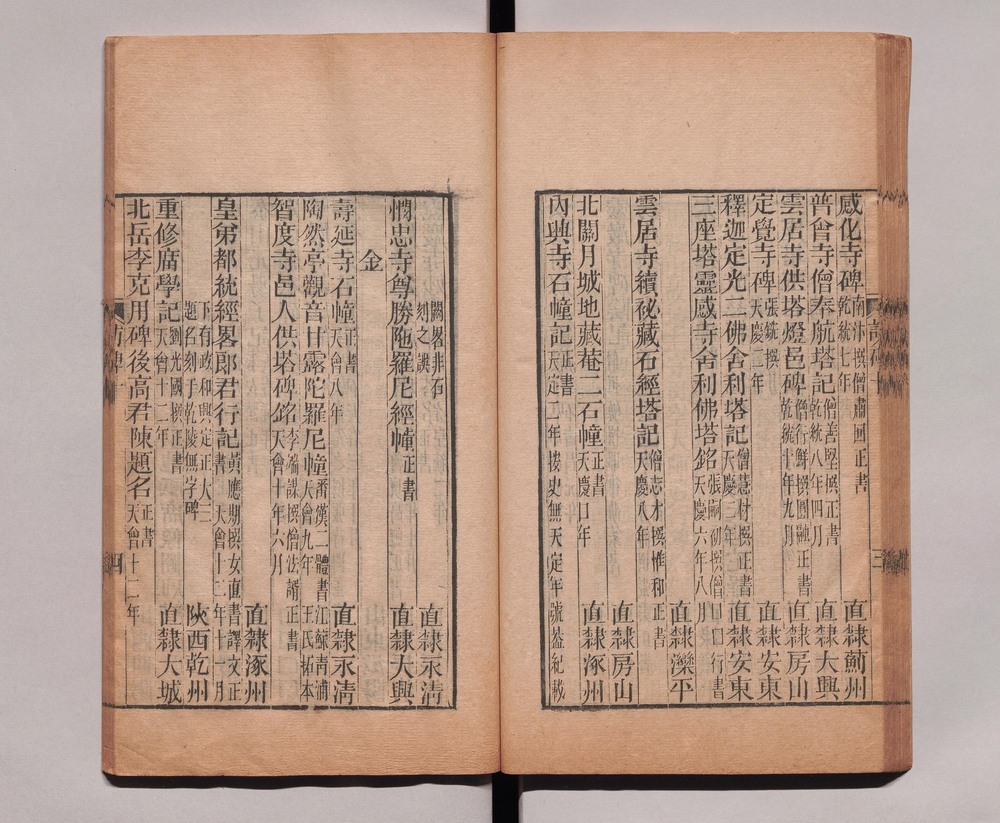 感化寺碑 南汴撰僧肅回正書 乾統七年 直隸薊州
普會寺僧奉航塔記 僧善堅撰正書 乾統八年四月 直隸大興
雲居寺供塔燈邑碑 僧行鮮撰圓融正書 乾統十年九月 直隸房山
定覺寺碑 張毓撰 天慶二年 直隸安東
釋迦定光二佛舍利塔記 僧慧材撰正書 天慶三年 直隸安東
三座塔靈感寺舍利佛塔銘 張嗣初撰僧口口行書 天慶六年八月
直隸灤平
雲居寺續祕藏石經塔記 僧志才撰惟和正書 天慶八年
直隸房山
北關月城地藏菴二石幢 正書 天慶口年 直隸涿州
內興寺石幢記 正書 天定二年按史無天定年號葢紀載
三
闕畧非石刻之譌 直隸永清
憫忠寺尊勝陁羅尼經幢 正書 直隸大興
金
壽延寺石幢 正書 天會八年 直隸永清
陶然亭觀音甘露陀羅尼幢 番漢二體書 天會九年 江蘇青浦王氏拓本
智度寺邑人供塔碑銘 李端謀撰僧法諝正書 天會十年六月
直隸涿州
皇弟都統經畧郎君行記 黃應期撰女直書譯文正書 天會十二年十一月
下有政和興定正大三題名刻于乾陵無字碑 陝西乾州
重修廟學記 劉光國撰正書 天會十二年 直隸大城
北岳李克用碑後高君陳題名 正書 天會十二年
四